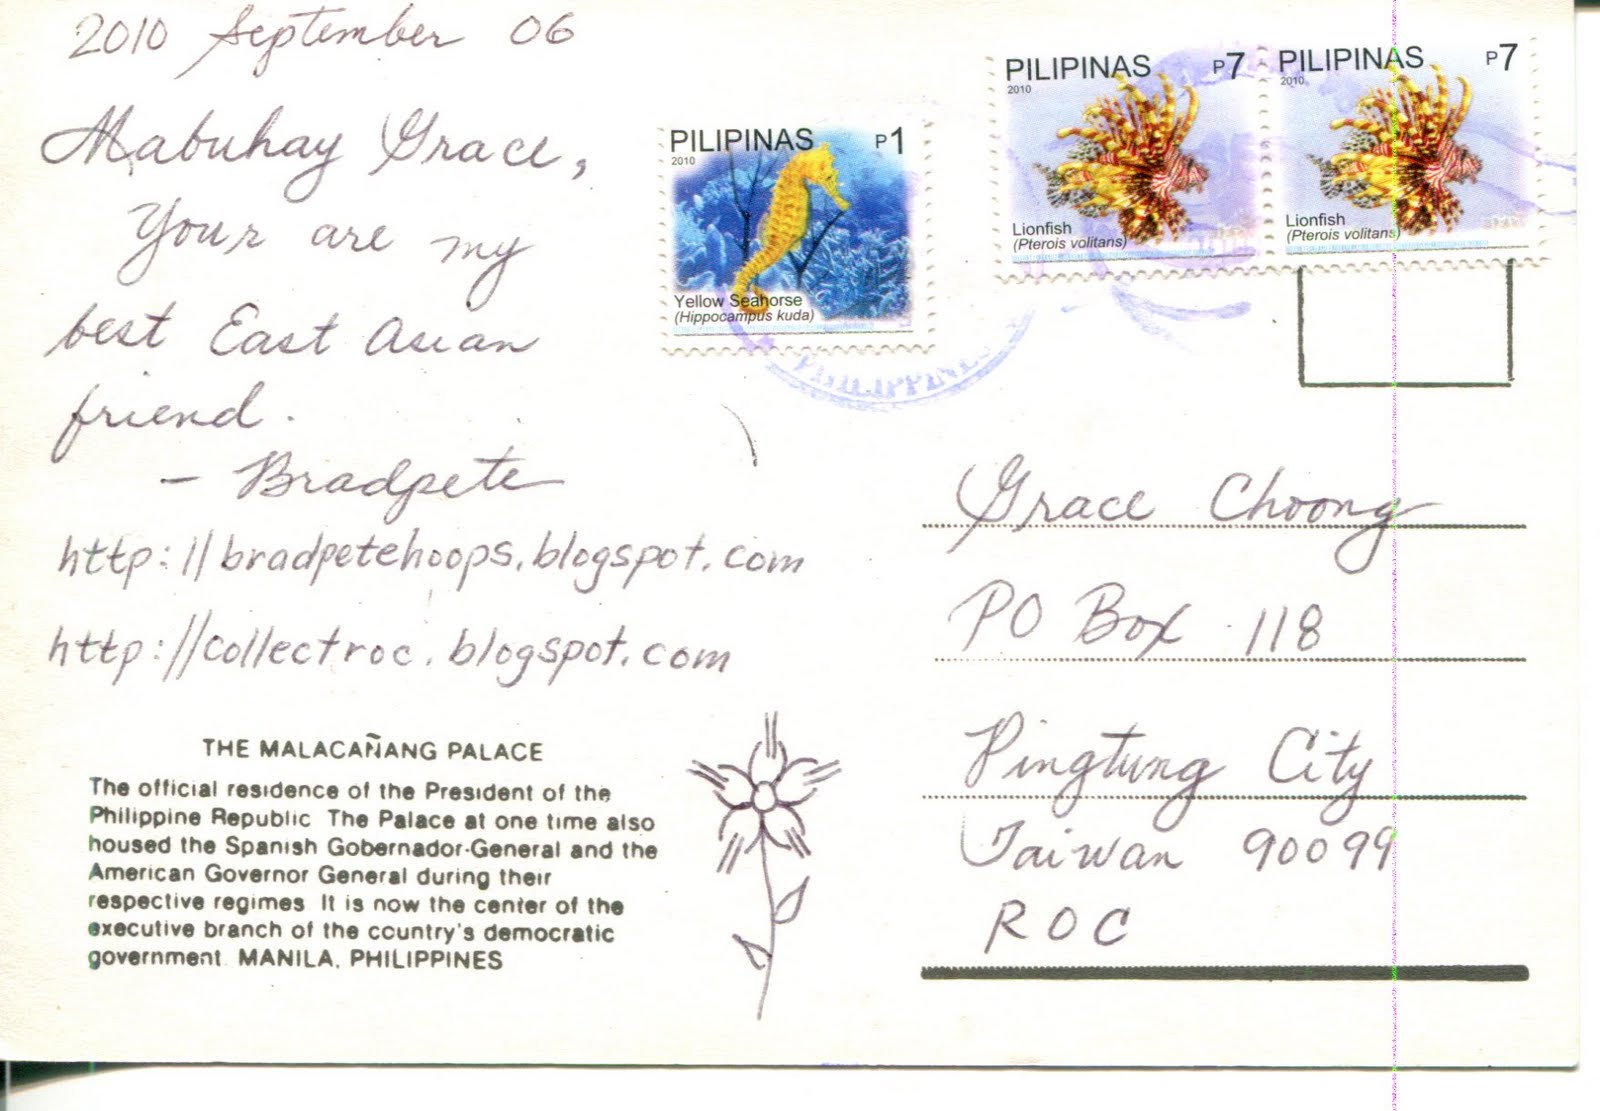 2010 September 06
Mabuhay Grace,
Your are my
best East Asian
friend.
- Bradpete
http://bradpetehoops.blogspot.com
http://collectroc.blogspot.com
THE MALACAÑANG PALACE
The official residence of the President of the
Philippine Republic The Palace at one time also
housed the Spanish Gobernador-General and the
American Governor General during their
respective regimes It is now the center of the
executive branch of the country's democratic
government. MANILA, PHILIPPINES
PILIPINAS P1
2010
Yellow Seahorse
(Hippocampus kuda)
PILIPINAS P7
2010
Lionfish
(Pterois volitans)
PILIPINAS P7
2010
Lionfish
(Pterois volitans)
PHILIPPINES
Grace Choong
PO Box 118
Pingtung City
Taiwan 90099
ROC